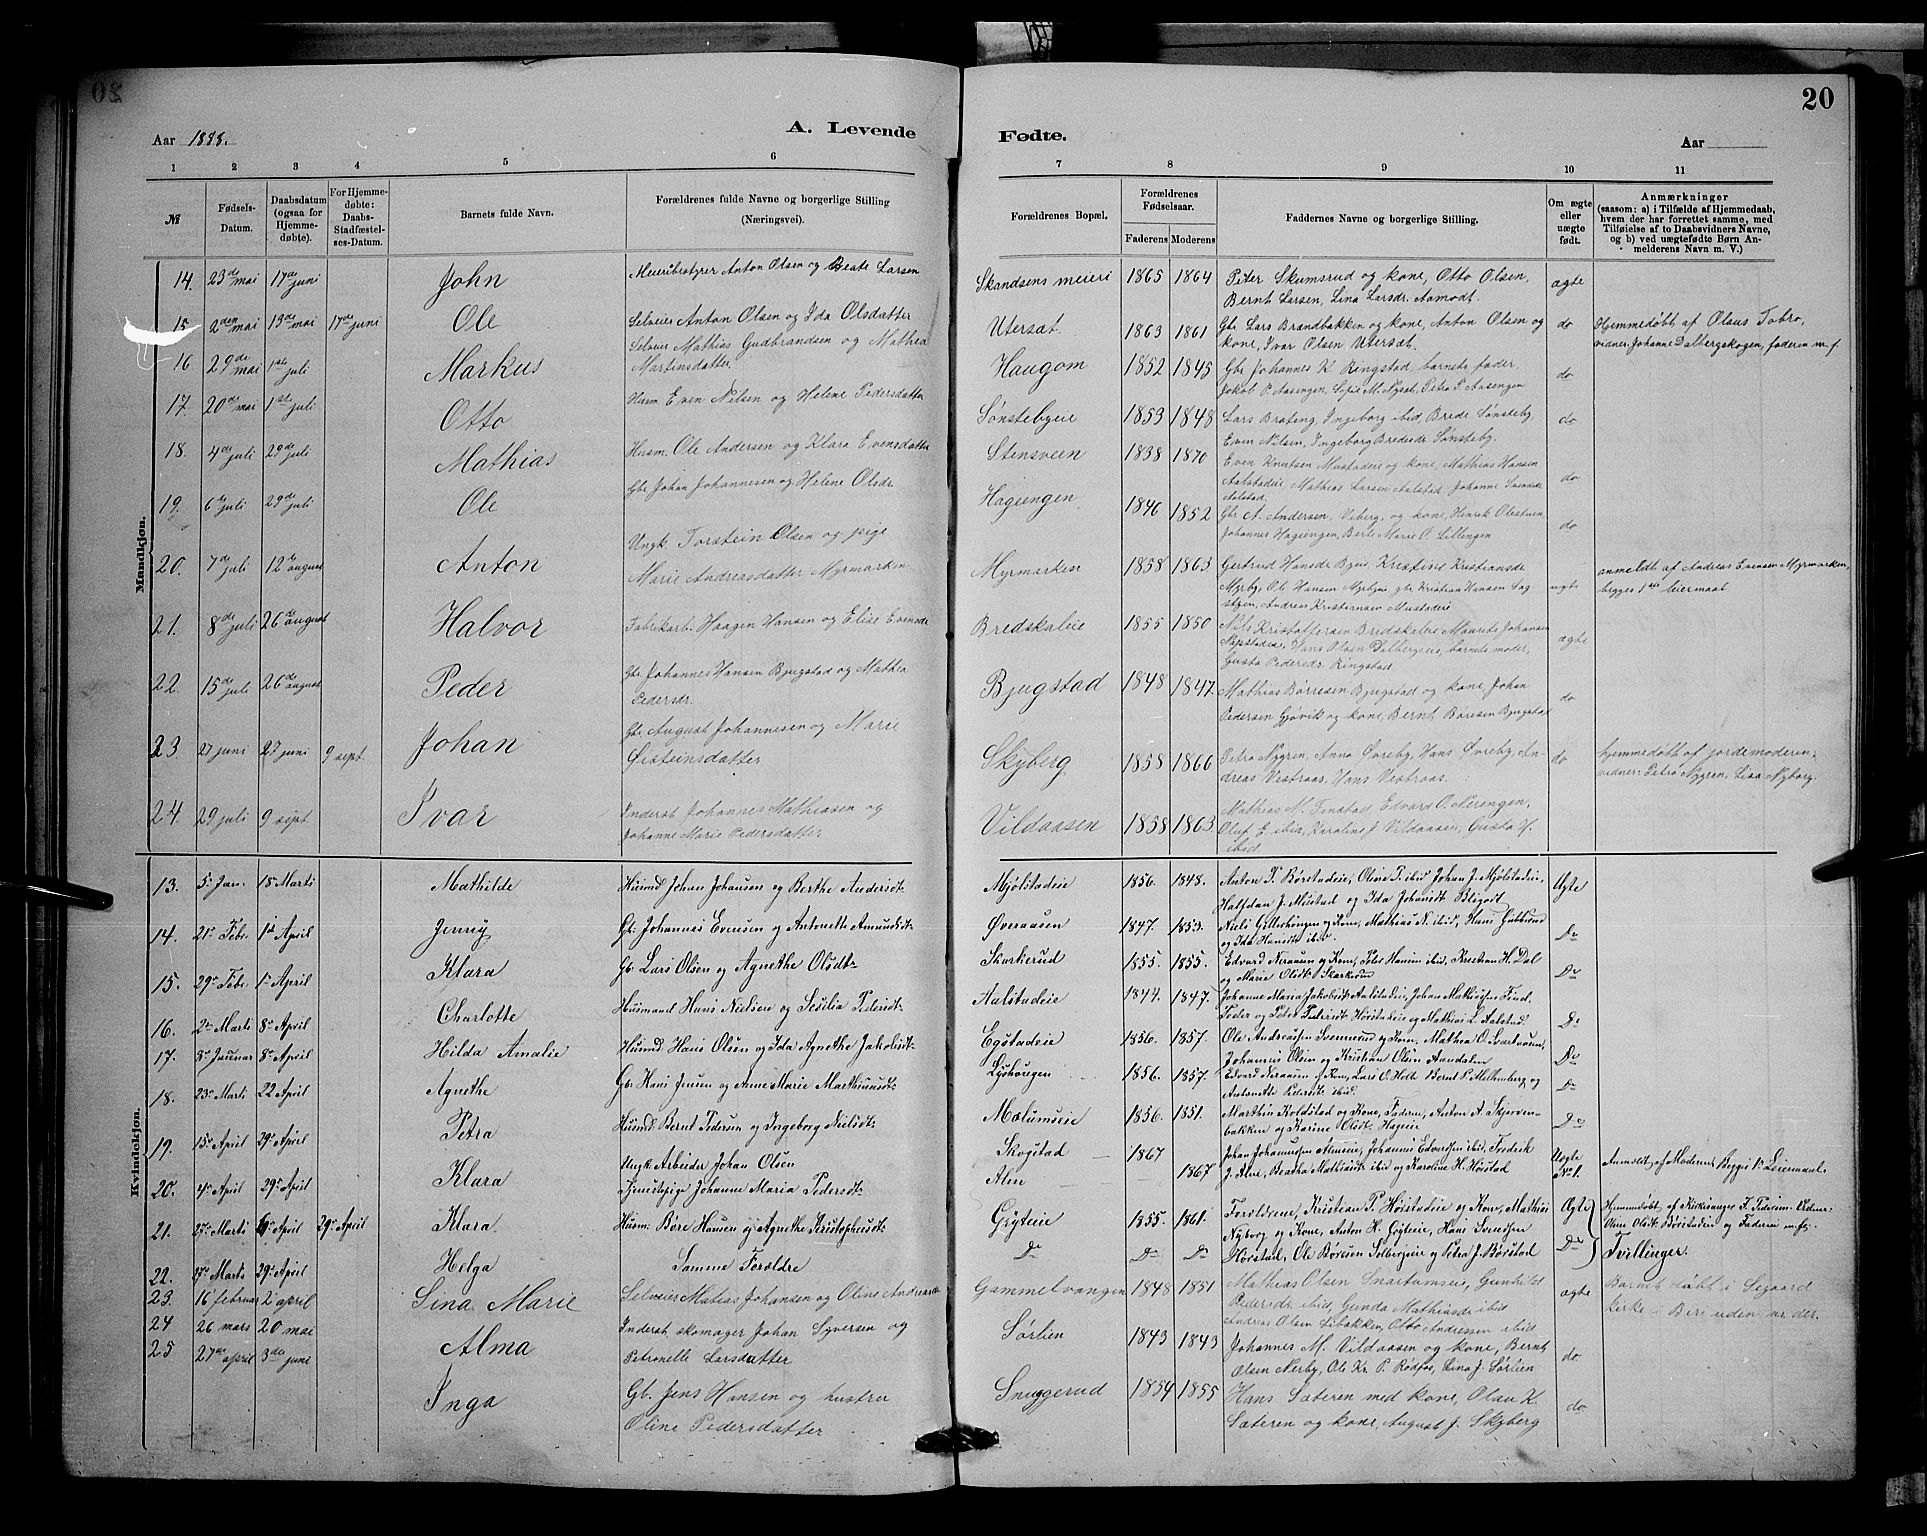 20
A. Levende
Fødte.
Aar 1888.
Aar
1 2 3 4 5 6 7 8 9 10 11
№
Fødsels-Datum.
Daabsdatum (ogsaa for Hjemmedøbte).
For Hjemmedøbte: Daabs-Stadfæstelses-Datum.
Barnets fulde Navn.
Forældrenes fulde Navne og borgerlige Stilling (Næringsvei).
Forældrenes Bopæl.
Forældrenes Fødselsaar.
Faderens Moderens
Faddernes Navne og borgerlige Stilling.
Om ægte eller uægte født.
Anmærkninger (saasom: a) i Tilfælde af Hjemmedaab, hvem der har forrettet samme, med Tilføielse af to Daabsvidners Navne, og b) ved uægtefødte Børn Anmelderens Navn m. V.)
Mandkjøn.
14. 23de mai 17de juni John Meieribestyrer Anton Olsen og Beate Larsen Skandsens meieri 1865 1864 Peter Skumsrud og kone, Otto Olsen, ægte
Bernt Larsen, Lina Larsdr. Aamodt.
15 2den mai 13de mai 17de juni Ole Selveier Anton Olsen og Ida Olsdatter Utersæt. 1863 1861 Gbr Lars Brandbakken og kone, Anton Olsen og do Hjemmedøbt af Olaus Tobro,
kone, Ivar Olsen Utersæt. vidner: Johanne Dalbergskogen, faderen m. f.
16 29de mai 1ste juli Markus Selveier Mathias Gudbrandsen og Mathea Haugom 1852 1845 Gbr Johannes K. Ringstad, barnets fader, do
Martinsdatter. Jakob P. Aasengen, Sofie M. Nysæt, Petra P. Aasengen
17. 20de mai 1ste juli Otto Husm Even Nilsen og Helene Pedersdatter Sønstebyeie 1853 1848 Lars Brateng, Ingeborg ibid, Brede Sønsteby, do
Even Nilsen, Ingeborg Bredesdr Sønsteby.
18. 4de juli 29de juli Mathias Husm. Ole Andersen og Klara Evensdatter Stensveen 1838 1870 Even Knutsen Mustadeie og kone, Mathias Hansen do
Aalstadeie, Mathias Larsen Aalstad, Johanne Svendsdr
Aalstad.
19. 6te juli 29de juli Ole Gbr Johan Johannesen og Helene Olsdr. Hageengen 1846 1852 Gbr A. Andersen, Viberg, og kone, Henrik Olestuen, do
Johannes Hageengen, Berte Marie O. Lillengen
20. 7de juli 12te august Anton Ungk. Torstein Olsen og pige Myrmarken 1858 1863 Gertrud Hansdr Byeie, Kristine Kristiansdr uægte anmeldt af Andreas Evensen Myrmarken,
Marie Andreasdatter Myrmarken Myrby, Ole Hansen Myrbyeie, gbr Kristian Hansen begges 1ste leiermaal
Andreas Kristiansen Mustadeie
21. 8de juli 26de august Halvor Fabrikarb. Haagen Hansen og Elise Evensdr Bredskaleie 1855 1850 Nils Kristoffersen Bredskaleie, Maurits Johansen ægte
Hans Olsen Dalbergseie, barnets moder,
Gusta Pedersdr. Ringstad.
22. 15de juli 26de august Peder Gbr Johannes Hansen Bjugstad og Mathea Bjugstad 1848 1847. Mathias Børresen Bjugstad og kone, Johan do
Pedersdr. Pedersen Gjøvik og kone, Bernt Børesen Bjugstad
23. 27 juni 27 juni 9 sept. Johan Gbr August Johannesen og Marie Skyberg 1858 1866 Petra Nygren, Anna Øvreby, Hans Øvreby, An- do hjemmedøbt af jordemoderen.
Øisteinsdatter dreas Vestraas, Hans Vestraas. vidner: Petra Nygren, Lina Nyborg.
24. 29 juli 9 sept Ivar Inderst Johannes Mathiasen og Vildaasen 1838 1863. Mathias M. Finstad, Edvard O. Nerengen,
Johanne Marie Pedersdatter Oluf E. ibid, Karoline J. Vildaasen, Gusta H.
ibid.
Kvindekjøn.
13. 5. Jan. 18 Marti Mathilde Husmd Johan Johansen og Berthe Andersdt. Mjølstadeie 1856. 1848. Anton P. Børstadeie, Oline P. ibid, Johan J. Mjølstadeie, Ægte
Halfdan J. Meistad og Ida Johansdt Blegset
14. 21. Febr. 1st April Jenny Gb. Johannes Evensen og Antonette Amundsdt. Øveraasen 1847. 1853. Niels Gillerhaugen og Kone, Mathias N. ibid, Hans Gubbrud Do
og Ida Hansdt ibid.
15. 29. Febr. 1st April Klara Gb. Lars Olsen og Agnethe Olsdt. Skarkerud 1855. 1855. Edvard Neraasen og Kone, Peter Hansen ibid, Kristian H. Dal Do
og Marie Olsdt Skarkerud
16. 2n Marti 8n April Charlotte Husmand Hans Nielsen og Sesilia Pedersdt. Aalstadeie 1844. 1847. Johanne Maria Jakobsdt Aalstadeie, Johan Mathisen Find, Do
Peder og Petra Pedersdt Høistadeie og Mathias L. Aalstad.
17. 8n Januar 8n April Hilda Amalie Husmd Hans Olsen og Ida Agnethe Jakobsdt. Egstadeie 1856. 1857. Ole Andreassen Svennerud og Kone, Mathea O. Svartaasen, Do
Johannes Olsen og Kristian Olsen Aandalen
18. 23. Marti 22 April Agnethe Gb. Hans Jensen og Anne Marie Marthinusdt. Lyshaugen 1856. 1857. Edvard Neraasen og Kone, Lars O. Holt, Bernt P. Mellemberg og Do
Antonette Pedersdt ibid.
19. 15n April 29n April Petra Husmd Bernt Pedersen og Ingeborg Nielsdt. Mælumseie 1856. 1851. Marthin Koldstad og Kone, Faderen, Anton A. Skjerven- Do
bakken og Karine Olsdt Hageie
20. 4n April 29. April Klara Ungk. Arbeider Johan Olsen Skogstad 1867 Johan Johannesen Almseie, Johannes Edvardsen ibid, Fredrik Uægte Anmeldt af Moderen, Begges 1st Leiermaal.
Tjenestepige Johanne Maria Pedersdt. Alm 1867 J. Alm, Beatha Mathisdt ibid og Karoline H. Høistad No 1.
21. 27. Marti 6n April 29n April Klara. Husm: Børe Hansen og Agnethe Kristophersdt. Grøteie 1855. 1861. Forældrene, Kristian P. Høistadeie og Kone, Mathias Ægte Hjemmedøbt af Kirkesanger J. Pedersen. Vidner:
Nyborg og Kone, Anton H. Grøteie, Hans Svendsen Oline Olsdt Børstadeie og Faderen m. fl.
22. 27. Marts 29. April Helga Samme Forældre Do Do Do Hørstad, Ole Børesen Solbergseie og Petra J. Børstad Do Tvillinger.
23. 16 februar 2 april Sina Marie Selveier Matias Johansen og Oline Andreasdr Gammelvangen 1848 1851 Mathias Olsen Snartumseie, Gunhild ægte Barnet døbt i Segaard
Pedersdr. ibid, Gunda Mathiasdr ibid kirke i Biri uden nr. der.
Andreas Olsen Libakken, Otto Andressen ibid
24 26 mars 20 mai Alma Inderst, skomager Johan Syversen og Sørlien 1843 1843 Johannes M. Vildaasen og kone, Bernt do.
Petronelle Larsdatter Olsen Nerby, Ole Kr. P. Rødfos, Lina J. Sørlien
25 27de april 3de juni Inga Gb. Jens Hansen og hustru Snuggerud 1854 1855 Hans Sæteren med kone, Olau K. do.
Oline Pedersdatter Sæteren og kone, August J. Skyberg